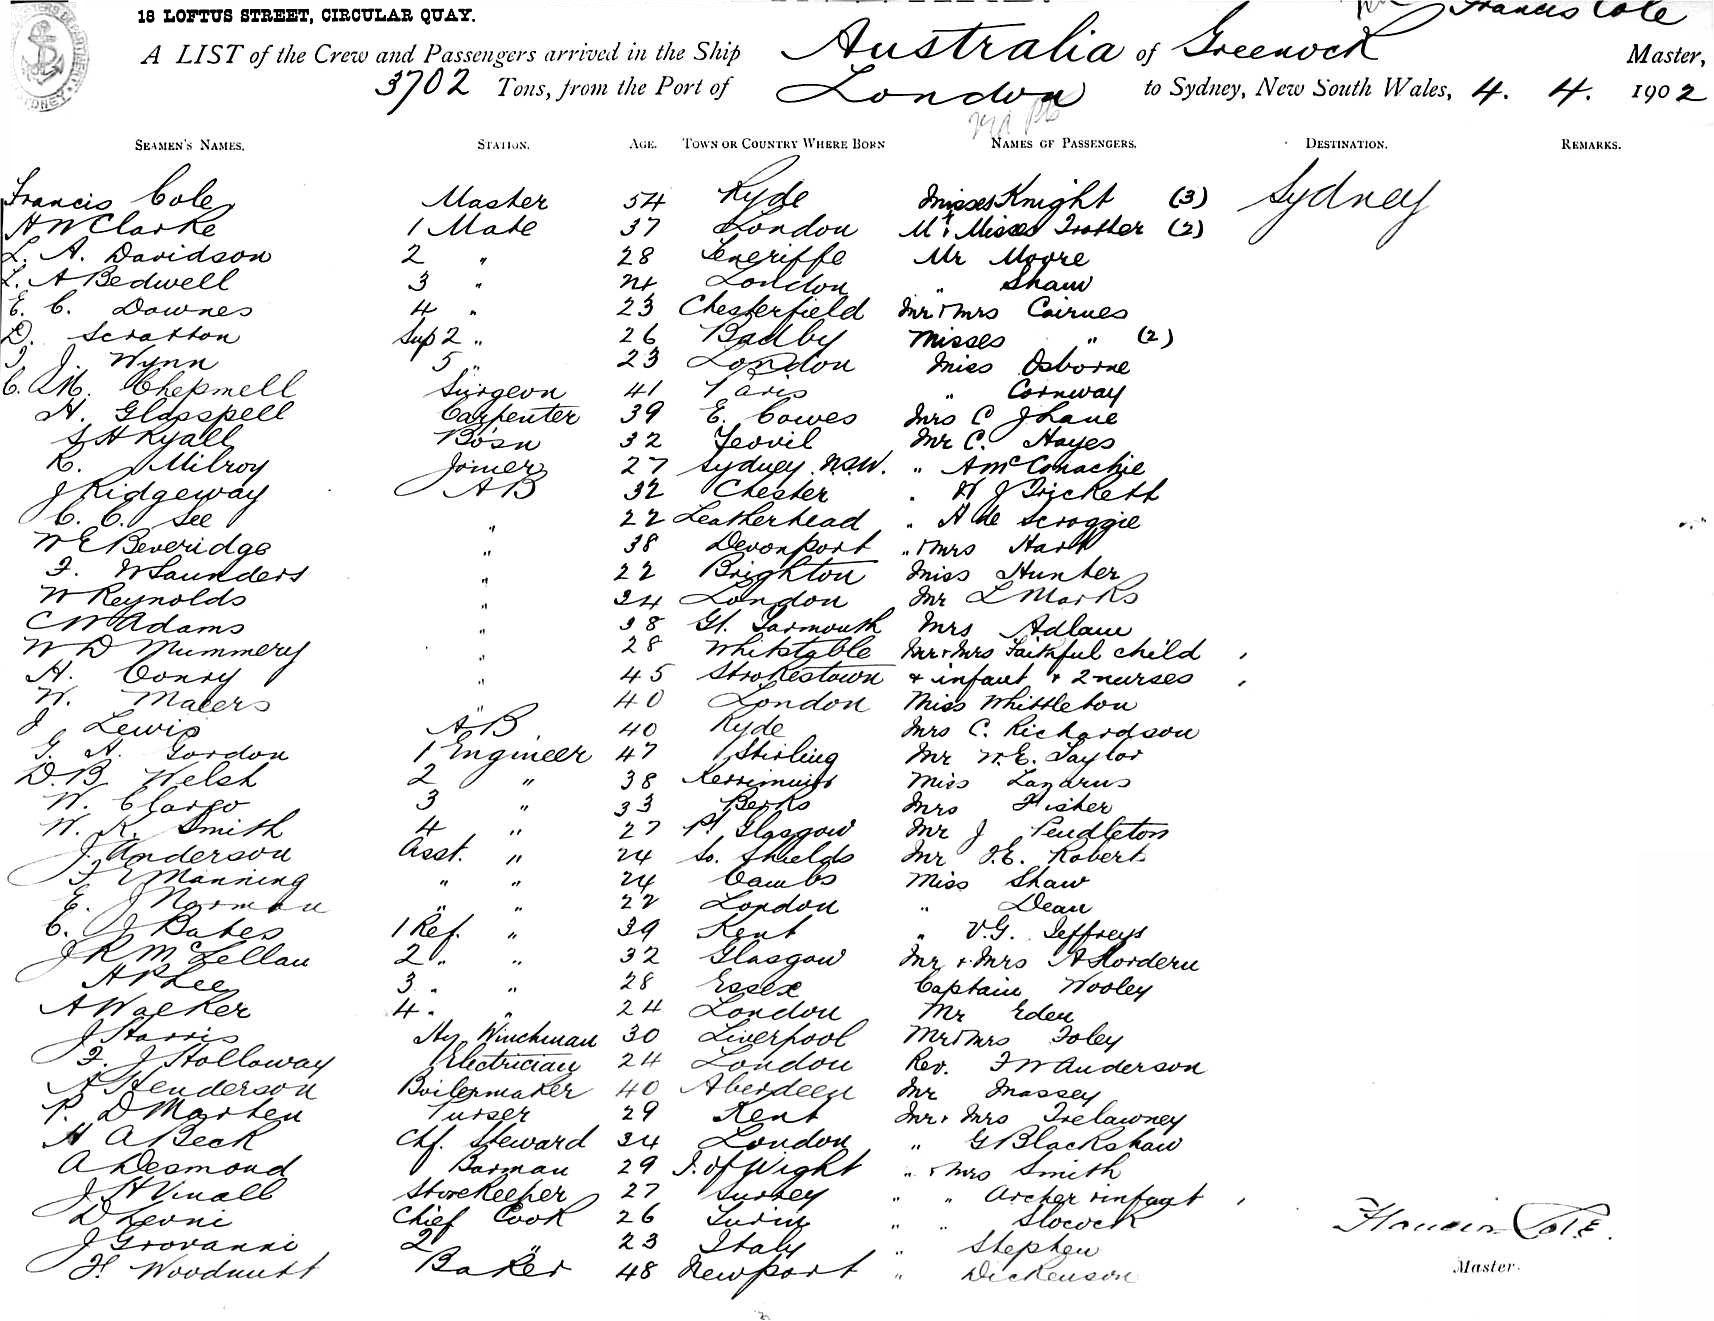 18 LOFTUS STREET, CIRCULAR QUAY.
Francis Cole
A LIST of the Crew and Passengers arrived in the Ship Australia of Greenock Master,
3702 Tons, from the Port of London to Sydney, New South Wales, 4. 4. 1902
SEAMEN'S NAMES. STATION. AGE. TOWN OR COUNTRY WHERE BORN NAMES OF PASSENGERS. DESTINATION. REMARKS.
Francis Cole Master 54 Ryde Misses Knight (3) Sydney
H W Clarke 1 Mate 37 London Mr & Misses Trotter (2)
L. A. Davidson 2 " 28 Teneriffe Mr Moore
L. A Bedwell 3 " 24 London " Shaw
E. C. Downes 4 " 23 Chesterfield Mr & Mrs Cairnes
D. Scratton Sup 2 " 26 Badby Misses " (2)
J. Wynn 5 " 23 London Miss Osborne
C. A. M. Chepmell Surgeon 41 Paris " Cornway
H. Glasspell Carpenter 39 E. Cowes Mrs C J Lane
S H Ryall Bosn 32 Yeovil Mr C. Hayes
R. Milroy Joiner 27 Sydney N.S.W. " A McConachie
J Ridgeway A B 32 Chester " W J Trickett
C. C. See " 22 Leatherhead " A de Scroggie
W E Beveridge " 38 Devonport " & Mrs Hart
F. W Saunders " 22 Brighton Miss Hunter
W Reynolds " 34 London Mr L Marks
C W Adams " 38 Gt. Yarmouth Mrs Adlam
W D Mummery " 28 Whitstable Mr & Mrs Faithful child
H. Conry " 45 Strokestown & infant & 2 nurses
W. Maters " 40 London Miss Whittleton
J Lewis A B 40 Ryde Mrs C. Richardson
G. A. Gordon 1 Engineer 47 Stirling Mr W. E. Taylor
D. B. Welsh 2 " 38 Kerrimuir Miss Lazarus
W. 3 " 33 Berks Mrs Fisher
W. R. Smith 4 " 27 Pt Glasgow Mr J Pendleton
J. Anderson Asst. " 24 So. Shields Mr J. E. Roberts
F E Manning " " 24 Cambs Miss Shaw
E. J Norman " " 22 London " Dean
C. J Bates 1 Ref. " 39 Kent " V. G. Jeffreys
J R McLellan 2 " " 32 Glasgow Mr & Mrs A Hordern
H P Lee 3 " " 28 Essex Captain Wooley
A Walker 4 " " 24 London Mr Eden
J Harris Hy Winchman 30 Liverpool Mr & Mrs Foley
F. J Holloway Electrician 24 London Rev. F W Anderson
A Henderson Boilermaker 40 Aberdeen Mr Massey
P. D Marten Purser 29 Kent Mr & Mrs Trelawney
H A Beck Chf. Steward 34 London " G Blackshaw
A Desmond Barman 29 I. of Wight " & Mrs Smith
J H Vinall Storekeeper 27 Surrey " " Archer & infant
D Leoni Chief Cook 26 Turin " " Slocock
J Giovanni 2 " 23 Italy " Stephen
H. Woodnutt Baker 48 Newport " Dickenson
Francis Cole.
Master.